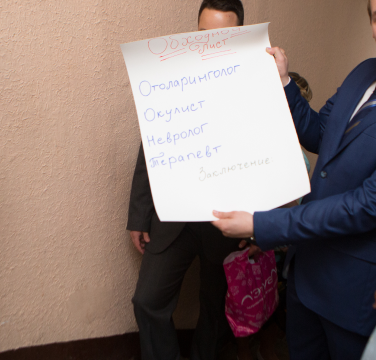 Обходной
лист
Отоларинголог
Окулист
Невролог
Терапевт
Заключение